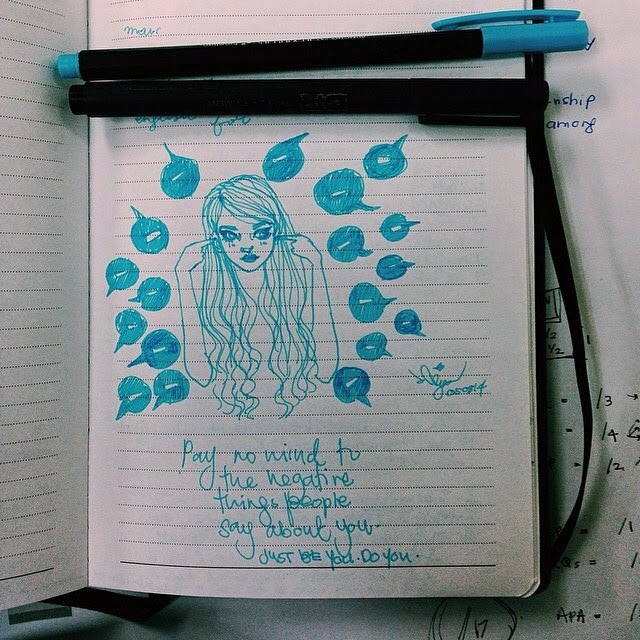 Pay no mind to
the negative
things people
say about you.
JUST BE YOU. DO YOU.
nship
among
/3
/4
/2
/1
APA =